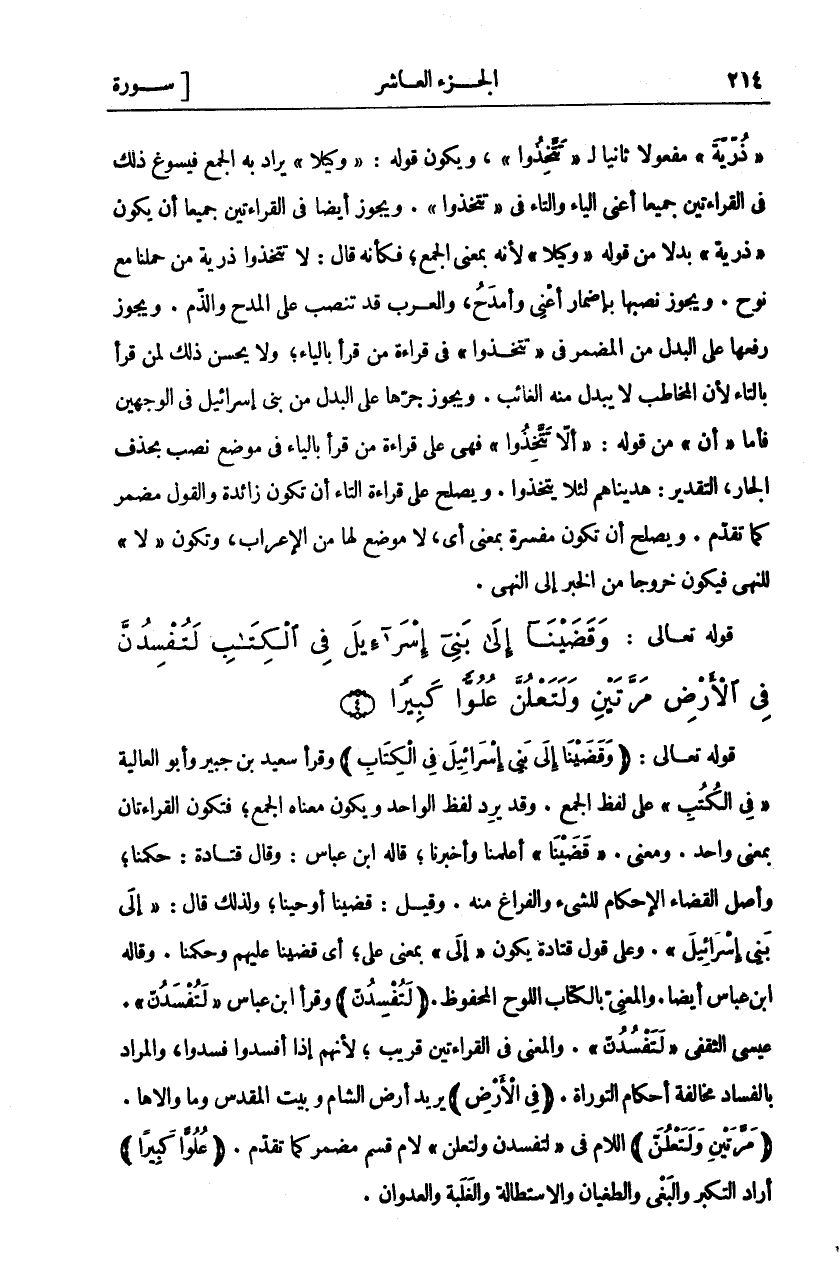 ٢١٤ الجزء العاشر [ سورة
« ذُرِّيَّةَ » مفعولا ثانيا لـ « تَتَّخِذُوا » ، ويكون قوله : « وكيلا » يراد به الجمع فيسوغ ذلك
فى القراءتين جميعا أعنى الياء والتاء فى « تتخذوا » . ويجوز أيضا فى القراءتين جميعا أن يكون
« ذرية » بدلا من قوله « وكيلا » لأنه بمعنى الجمع؛ فكأنه قال : لا تتخذوا ذرية من حملنا مع
نوح . ويجوز نصبها بإضمار أعْنِى وأمدَحُ، والعرب قد تنصب على المدح والذّم . ويجوز
رفعها على البدل من المضمر فى « تتخذوا » فى قراءة من قرأ بالياء؛ ولا يحسن ذلك لمن قرأ
بالتاء لأن المخاطب لا يبدل منه الغائب . ويجوز جرّها على البدل من بنى إسرائيل فى الوجهين
فأما « أن » من قوله : « ألّا تَتَّخِذُوا » فهى على قراءة من قرأ بالياء فى موضع نصب بحذف
الجار، التقدير : هديناهم لئلا يتخذوا . ويصلح على قراءة التاء أن تكون زائدة والقول مضمر
كما تقدّم . ويصلح أن تكون مفسرة بمعنى أى، لا موضع لها من الإعراب، وتكون « لا »
للنهى فيكون خروجا من الخبر إلى النهى .
قوله تعالى : وَقَضَيْنَآ إِلَىٰ بَنِىٓ إِسْرَٰٓءِيلَ فِى ٱلْكِتَٰبِ لَتُفْسِدُنَّ
فِى ٱلْأَرْضِ مَرَّتَيْنِ وَلَتَعْلُنَّ عُلُوًّا كَبِيرًا ﴿٤﴾
قوله تعالى : ﴿ وَقَضَيْنَا إِلَى بَنِى إِسْرَائِيلَ فِى الْكِتَابِ ﴾ وقرأ سعيد بن جبير وأبو العالية
« فِى الكُتُبِ » على لفظ الجمع . وقد يرِد لفظ الواحد ويكون معناه الجمع؛ فتكون القراءتان
بمعنى واحد . ومعنى . « قَضَيْنَا » أعلمنا وأخبرنا ؛ قاله ابن عباس : وقال قتادة : حكمنا؛
وأصل القضاء الإحكام للشىء والفراغ منه . وقيل : قضينا أوحينا؛ ولذلك قال : « إِلَى
بَنِى إِسْرَائِيلَ » . وعلى قول قتادة يكون « إلَى » بمعنى على؛ أى قضينا عليهم وحكمنا . وقاله
ابن عباس أيضا. والمعنىّ بالكتاب اللوح المحفوظ. ﴿ لَتُفْسِدُنّ ﴾ وقرأ ابن عباس « لَتُفْسَدُنّ » .
عيسى الثقفى « لَتَفْسُدُنّ » . والمعنى فى القراءتين قريب ؛ لأنهم إذا أفسدوا فسدوا، والمراد
بالفساد مخالفة أحكام التوراة . ﴿ فِى الْأَرْضِ ﴾ يريد أرض الشام وبيت المقدس وما والاها .
﴿ مَرَّتَيْنِ وَلَتَعْلُنّ ﴾ اللام فى « لتفسدن ولتعلن » لام قسم مضمر كما تقدّم . ﴿ عُلُوًّا كَبِيرًا ﴾
أراد التكبر والبَغْى والطغيان والاستطالة والغَلَبة والعدوان .